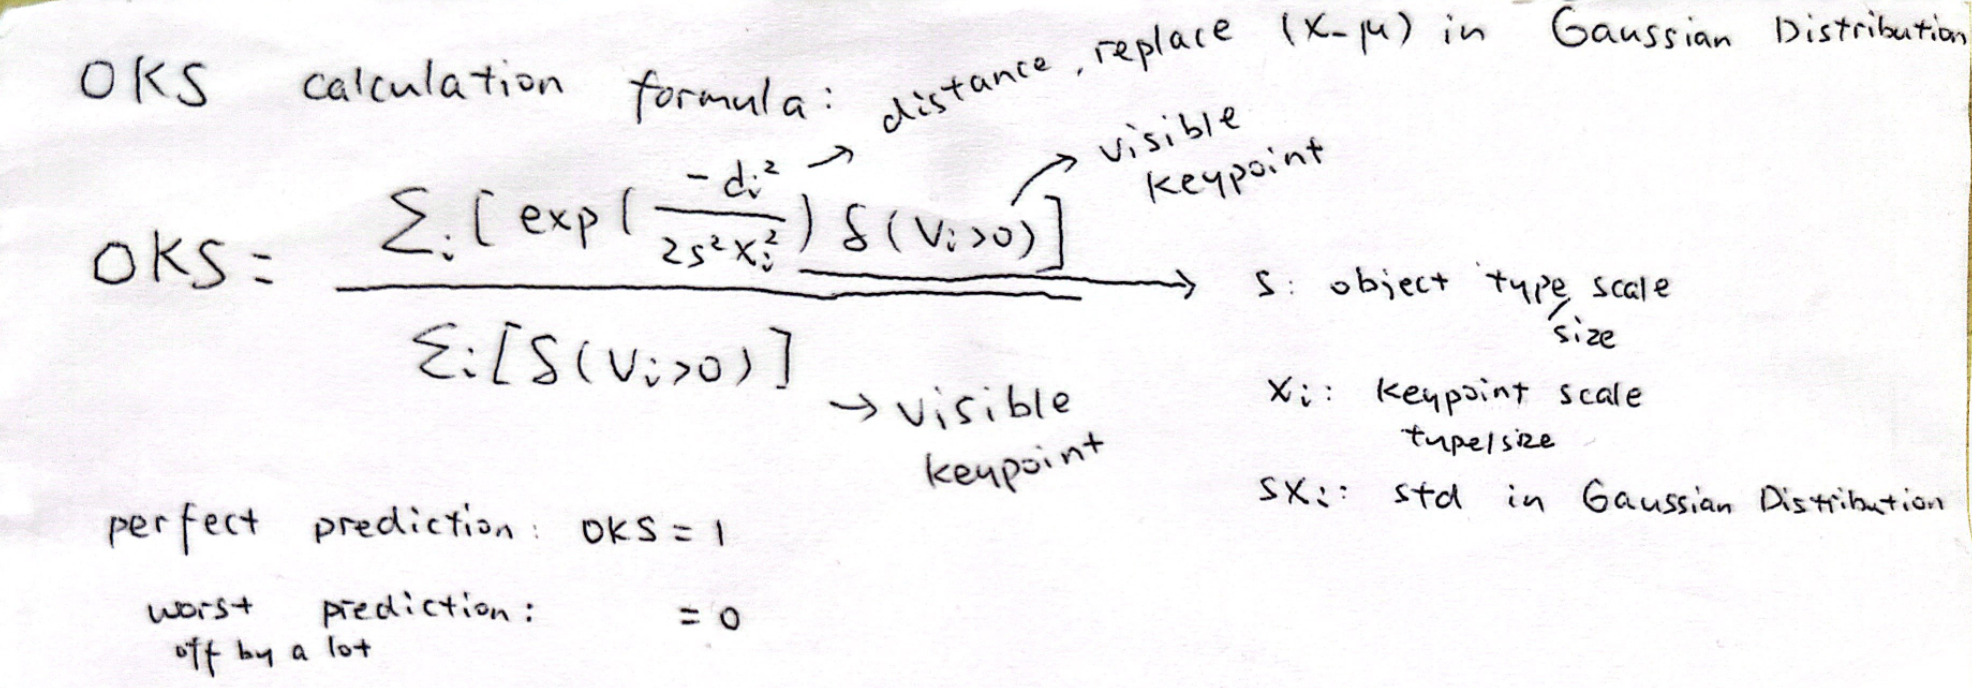 OKS calculation formula: distance, replace (x-μ) in Gaussian Distribution
visible
keypoint
OKS = Σi [ exp ( -di² / 2s²xi² ) δ(Vi>0) ] / Σi [δ(Vi>0)]
→ visible
keypoint
s: object type scale
size
xi: keypoint scale
type/size
sxi: std in Gaussian Distribution
perfect prediction: OKS = 1
worst prediction: = 0
off by a lot